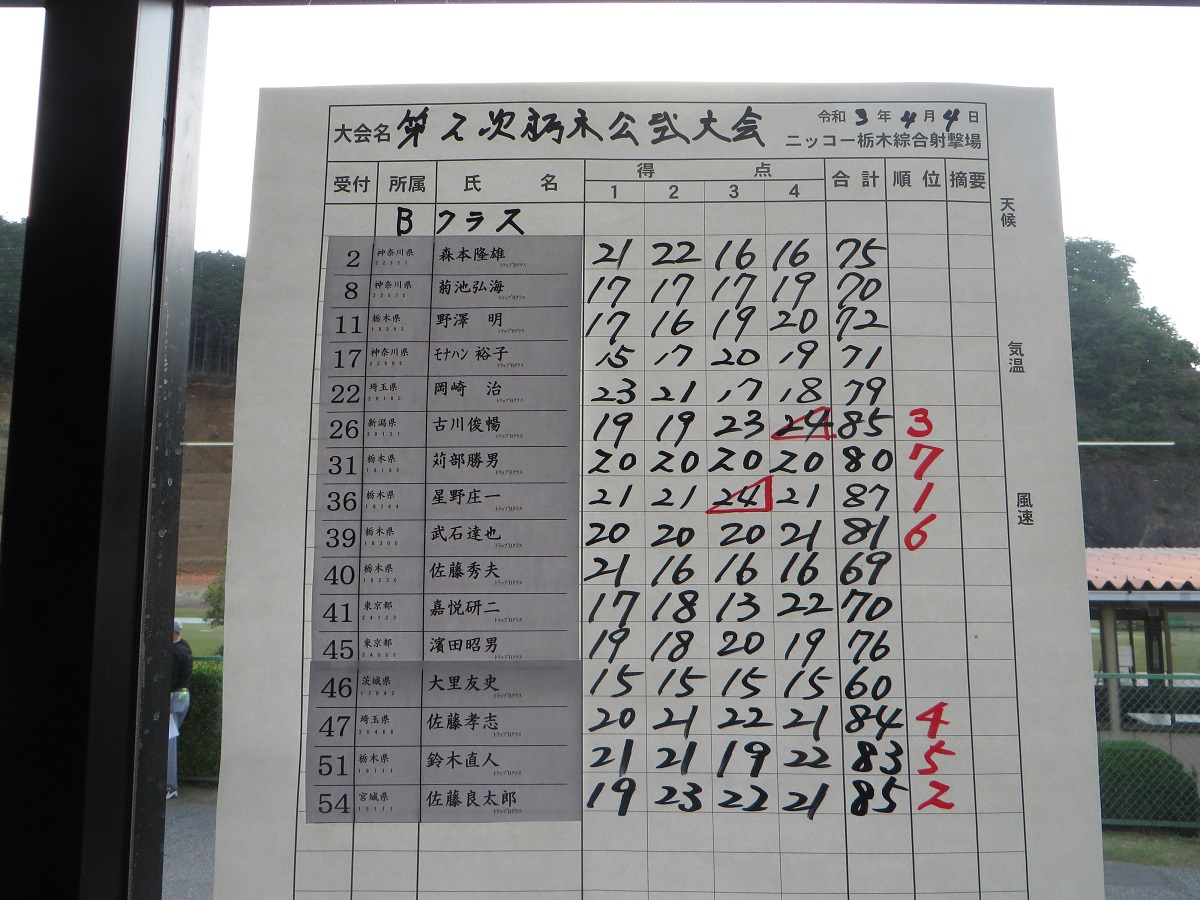 大会名 第2次栃木公式大会 令和 3 年 4 月 4 日
ニッコー栃木綜合射撃場
受付 所属 氏 名 得 点 合計 順位 摘要
1 2 3 4
天候
B クラス
2 神奈川県 森本隆雄 21 22 16 16 75
8 神奈川県 菊池弘海 17 17 17 19 70
11 栃木県 野澤 明 17 16 19 20 72
17 神奈川県 モナハン 裕子 15 17 20 19 71
気温
22 埼玉県 岡崎 治 23 21 17 18 79
26 新潟県 古川俊暢 19 19 23 24 85 3
31 栃木県 苅部勝男 20 20 20 20 80 7
36 栃木県 星野庄一 21 21 24 21 87 1
風速
39 栃木県 武石達也 20 20 20 21 81 6
40 栃木県 佐藤秀夫 21 16 16 16 69
41 東京都 嘉悦研二 17 18 13 22 70
45 東京都 濱田昭男 19 18 20 19 76
46 茨城県 大里友史 15 15 15 15 60
47 埼玉県 佐藤孝志 20 21 22 21 84 4
51 栃木県 鈴木直人 21 21 19 22 83 5
54 宮城県 佐藤良太郎 19 23 22 21 85 2